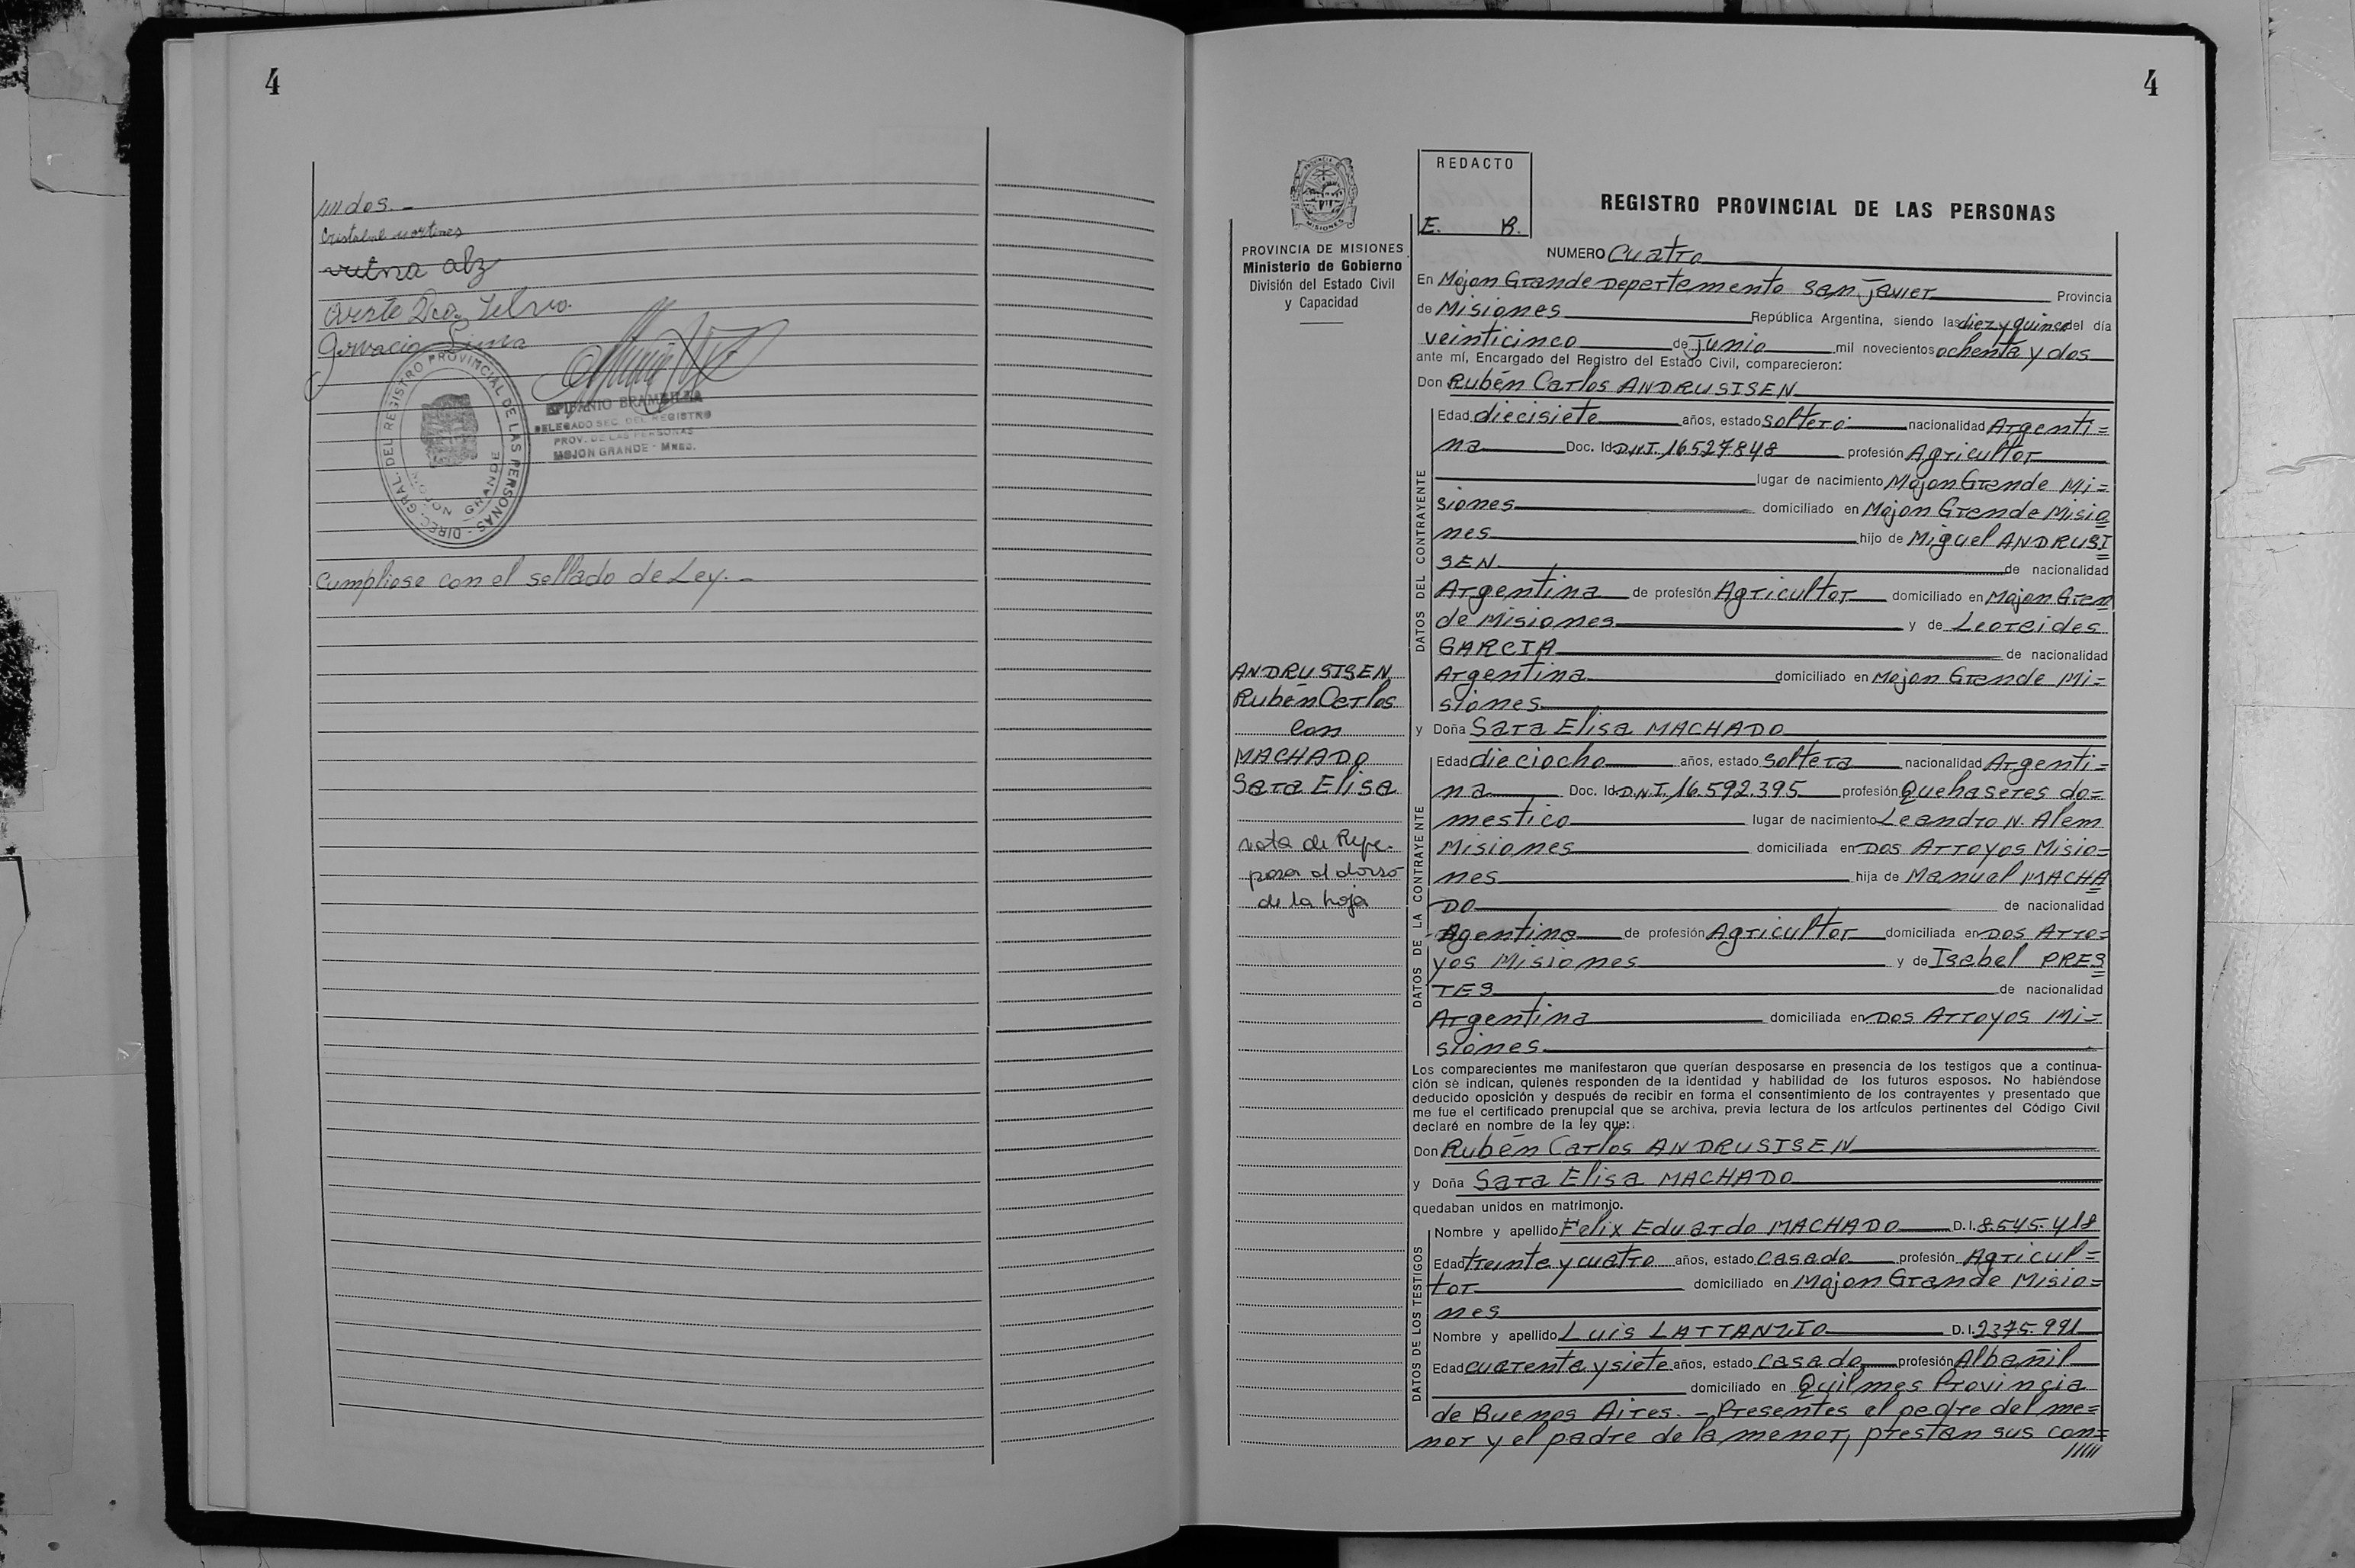 4
////dos.-
Cristobal Martines
Gervacio Lima
DIREC. GRAL. DEL REGISTRO PROVINCIAL DE LAS PERSONAS
MOJON GRANDE
EPIFANIO BRAMBILLA
DELEGADO SEC. DEL REGISTRO
PROV. DE LAS PERSONAS
MOJON GRANDE - Mnes.
Cumpliose con el sellado de Ley.-
4
PROVINCIA DE MISIONES
Ministerio de Gobierno
División del Estado Civil
y Capacidad
ANDRUSISEN
Rubén Carlos
con
MACHADO
Sara Elisa
nota de Refe.
pasa al dorso
de la hoja
REDACTO
E. B.
REGISTRO PROVINCIAL DE LAS PERSONAS
NUMERO Cuatro
En Mojon Grande Departamento San Javier Provincia
de Misiones República Argentina, siendo las diez y quince del día
veinticinco de Junio mil novecientos ochenta y dos
ante mí, Encargado del Registro del Estado Civil, comparecieron:
Don Rubén Carlos ANDRUSISEN
DATOS DEL CONTRAYENTE
Edad diecisiete años, estado soltero nacionalidad Argenti=
na Doc. Id. D.N.I. 16527848 profesión Agricultor
lugar de nacimiento Mojon Grande Mi=
siones domiciliado en Mojon Grande Misio
nes hijo de Miguel ANDRUSI
SEN de nacionalidad
Argentina de profesión Agricultor domiciliado en Mojon Gran
de Misiones y de Leoreides
GARCIA de nacionalidad
Argentina domiciliado en Mojon Grande Mi=
siones
y Doña Sara Elisa MACHADO
DATOS DE LA CONTRAYENTE
Edad dieciocho años, estado soltera nacionalidad Argenti=
na Doc. Id. D.N.I. 16.592.395 profesión Quehaseres do=
mestico lugar de nacimiento Leandro N. Alem
Misiones domiciliada en Dos Arroyos Misio=
nes hija de Manuel MACHA
DO de nacionalidad
Agentina de profesión Agricultor domiciliada en Dos Arro=
yos Misiones y de Isabel PRES
TES de nacionalidad
Argentina domiciliada en Dos Arroyos Mi=
siones
Los comparecientes me manifestaron que querían desposarse en presencia de los testigos que a continua-
ción se indican, quienés responden de la identidad y habilidad de los futuros esposos. No habiéndose
deducido oposición y después de recibir en forma el consentimiento de los contrayentes y presentado que
me fue el certificado prenupcial que se archiva, previa lectura de los artículos pertinentes del Código Civil
declaré en nombre de la ley que:
Don Rubén Carlos ANDRUSISEN
y Doña Sara Elisa MACHADO
quedaban unidos en matrimonio.
DATOS DE LOS TESTIGOS
Nombre y apellido Felix Eduardo MACHADO D.I. 8.545.418
Edad treinta y cuatro años, estado casado profesión Agricul=
tor domiciliado en Mojon Grande Misio=
nes
Nombre y apellido Luis LATTANZIO D.I. 2375.991
Edad cuarenta y siete años, estado casado profesión Albañil
domiciliado en Quilmes Provincia
de Buenos Aires.- Presentes el padre del me=
nor y el padre de la menor, prestan sus con=
/////